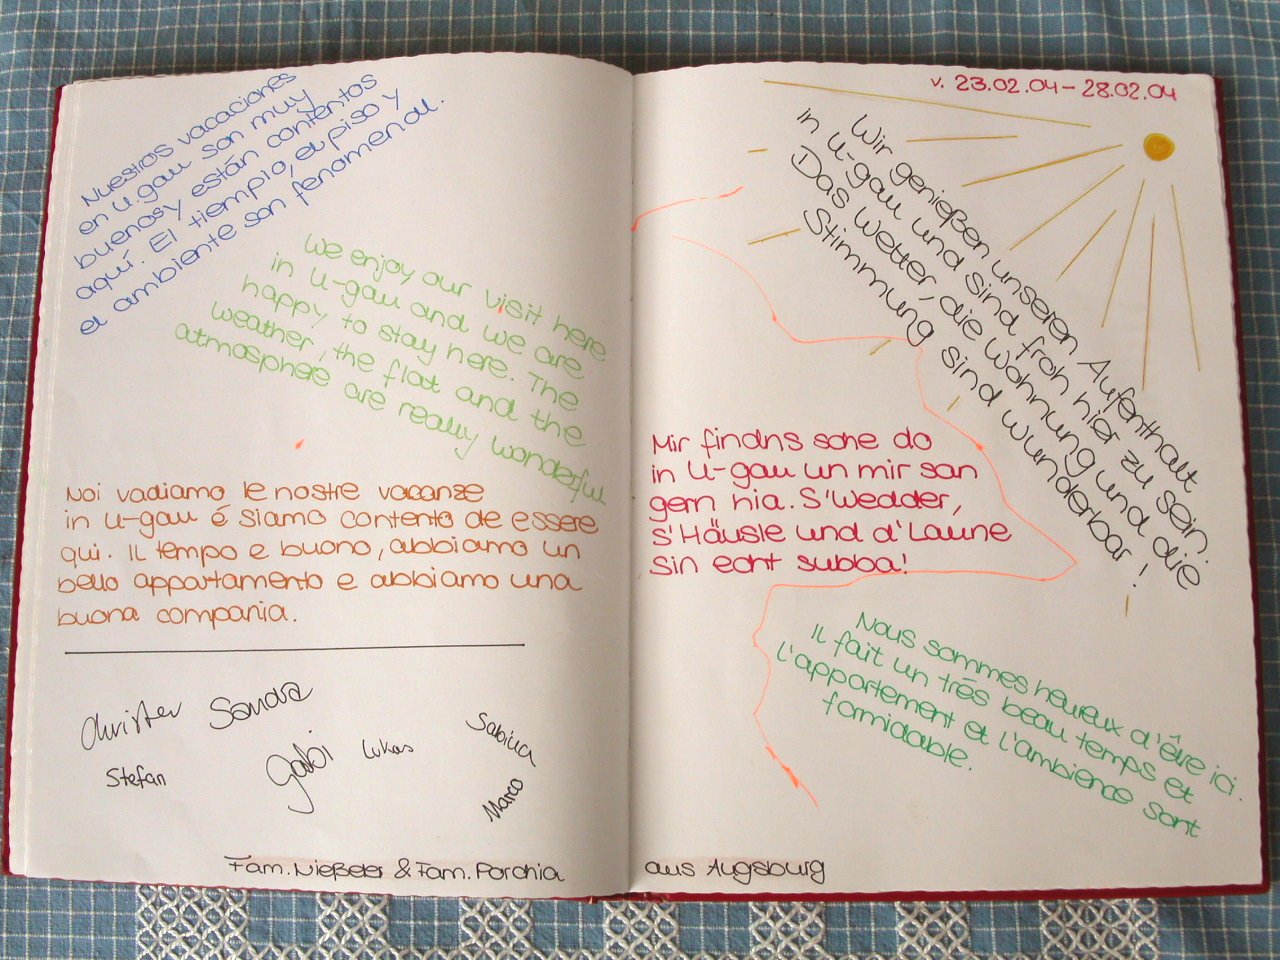 Nuestros vacaciones
en U.gau son muy
buenosy están contentos
aquí. El tiempio, el piso y
el ambiente son fenomenal.
We enjoy our visit here
in U-gau and we are
happy to stay here. The
weather, the flat and the
atmosphere are really wonderful.
Noi vadiamo le nostre vacanze
in U-gau é siamo contento de essere
qui. Il tempo e buono, abbiamo un
bello appartamento e abbiamo una
buona compania.
Christer Sandra
Stefan Gabi Lukas
Sabina
Marco
Fam. Nießeler & Fam. Porchia
v. 23.02.04 - 28.02.04
Wir genießen unseren Aufenthalt
in U-gau und sind froh hier zu sein.
Das Wetter, die Wohnung und die
Stimmung sind wunderbar!
Mir findns sche do
in U-gau un mir san
gern hia. S'Wedder,
s'Häusle und d'Laune
sin echt subba!
Nous sommes heureux d'êvre ici.
Il fait un très beau temps et
l'appartement et l'ambience sont
formidable.
aus Augsburg